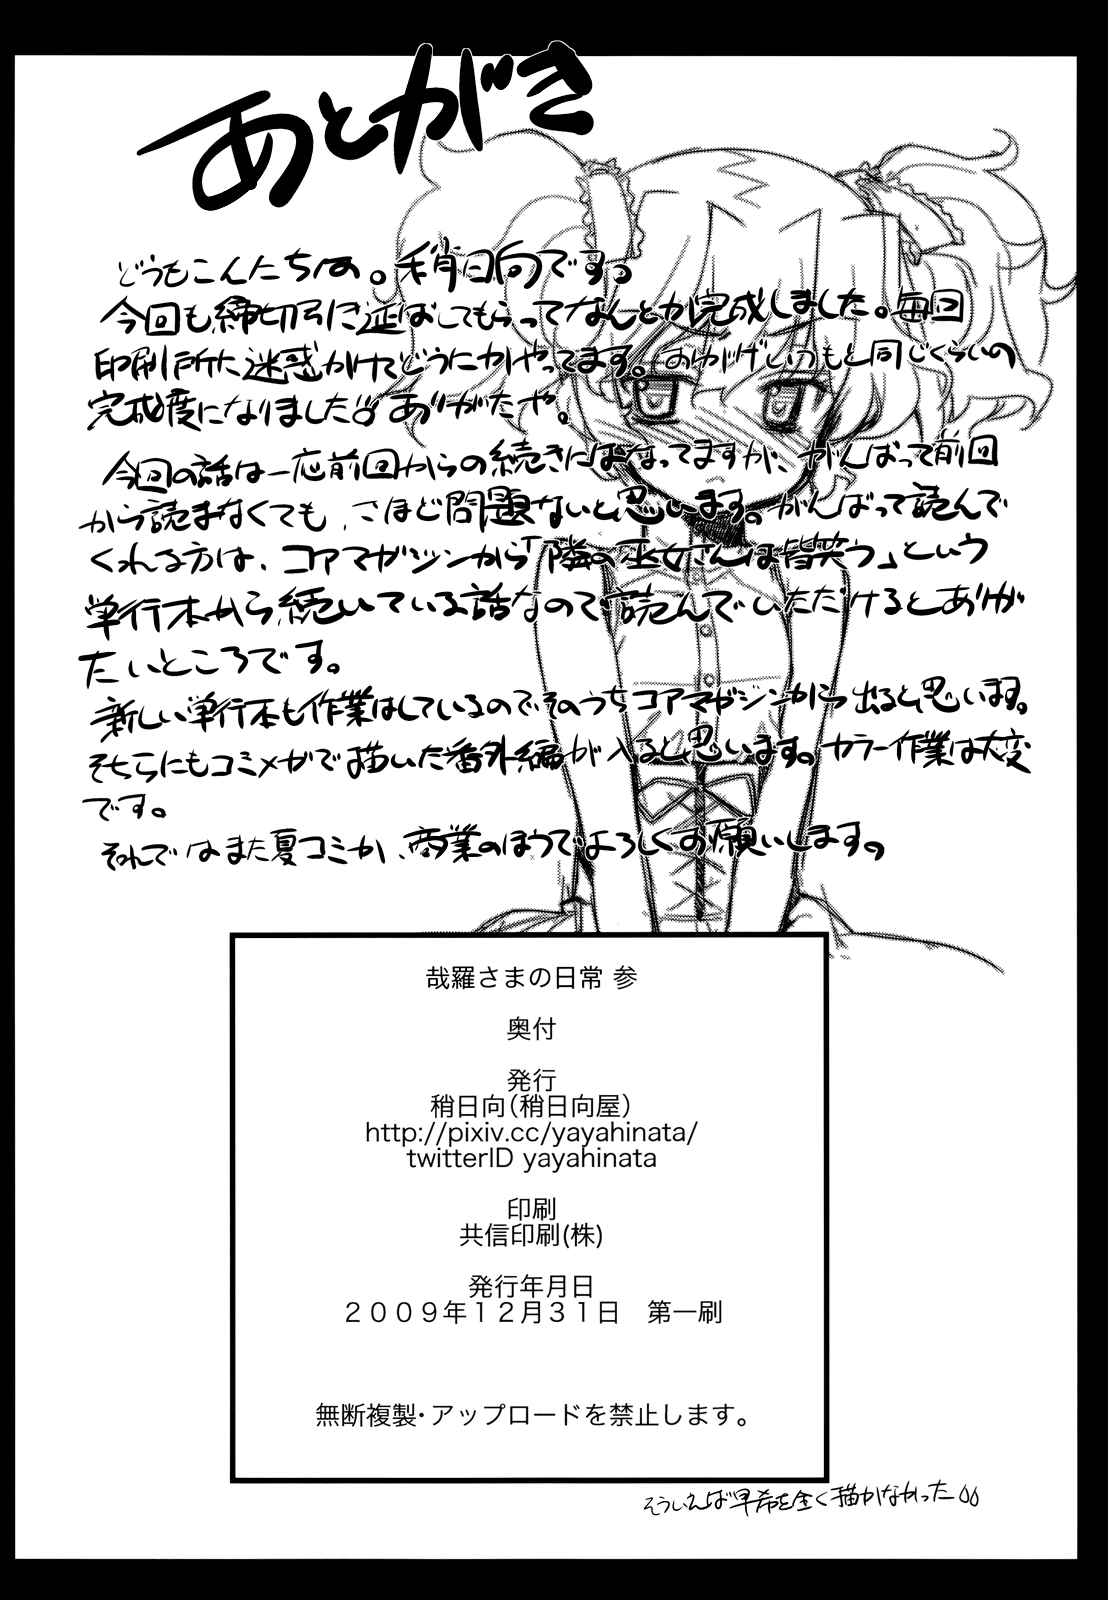 あとがき
どうもこんにちは。稍日向です。
今回も締切引き延ばしてもらってなんとか完成しました。毎回
印刷所に迷惑かけてどうにかやってます。おかげでいつもと同じくらいの
完成度になりました。ありがたや。
今回の話は一応前回からの続きにはなってますが、がんばって前回
から読まなくても、さほど問題ないと思います。がんばって読んで
くれる方は、コアマガジンから「隣の巫女さんは皆笑う」という
単行本から続いている話なので読んでいただけるとありが
たいところです。
新しい単行本も作業はしているのでそのうちコアマガジンから出ると思います。
そちらにもコミメガで描いた番外編が入ると思います。カラー作業は大変
です。
それではまた夏コミか、商業のほうでよろしくお願いします。
哉羅さまの日常 参
奥付
発行
稍日向（稍日向屋）
http://pixiv.cc/yayahinata/
twitterID yayahinata
印刷
共信印刷(株)
発行年月日
２００９年１２月３１日　第一刷
無断複製・アップロードを禁止します。
そういえば早希を全く描かなかった